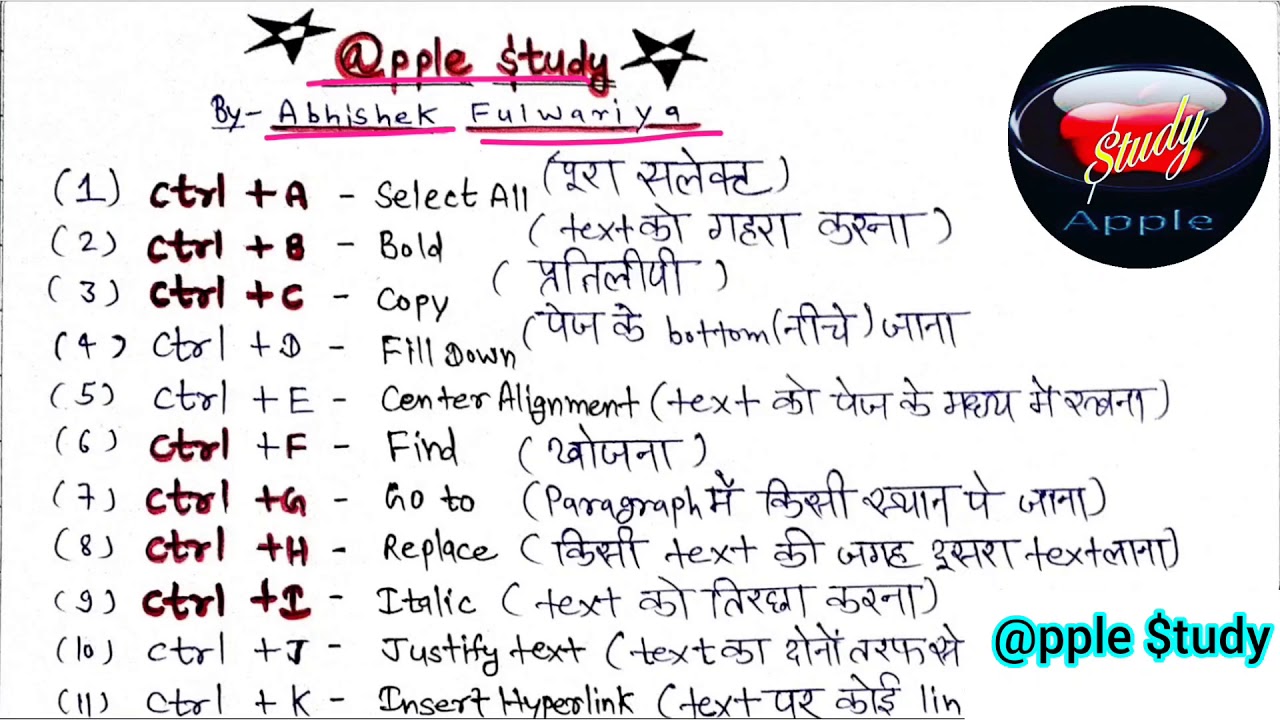 @pple $tudy
By- Abhishek Fulwariya
$tudy
Apple
(1) ctrl + A - Select All (पूरा सलेक्ट)
(2) ctrl + B - Bold (text को गहरा करना)
(3) ctrl + C - Copy (प्रतिलीपी)
(4) ctrl + D - Fill Down (पेज के bottom (नीचे) जाना
(5) ctrl + E - Center Alignment (text को पेज के मध्य में रखना)
(6) ctrl + F - Find (खोजना)
(7) ctrl + G - Go to (Paragraph में किसी स्थान पे जाना)
(8) ctrl + H - Replace (किसी text की जगह दूसरा text लाना)
(9) ctrl + I - Italic (text को तिरछा करना)
(10) ctrl + J - Justify text (text का दोनों तरफ से
@pple $tudy
(11) ctrl + K - Insert Hyperlink (text पर कोई lin